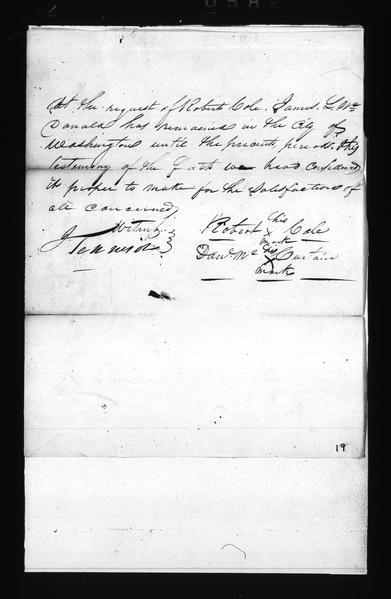 At the request of Robert Cole, James L Mc
Donald has remained in the City of
Washington until the present period. this
testimony of the fact we have considered
it proper to make for the satisfaction of
all concerned,
Robert his Cole
X
mark
Danl Mc his Curtain
X
mark
19